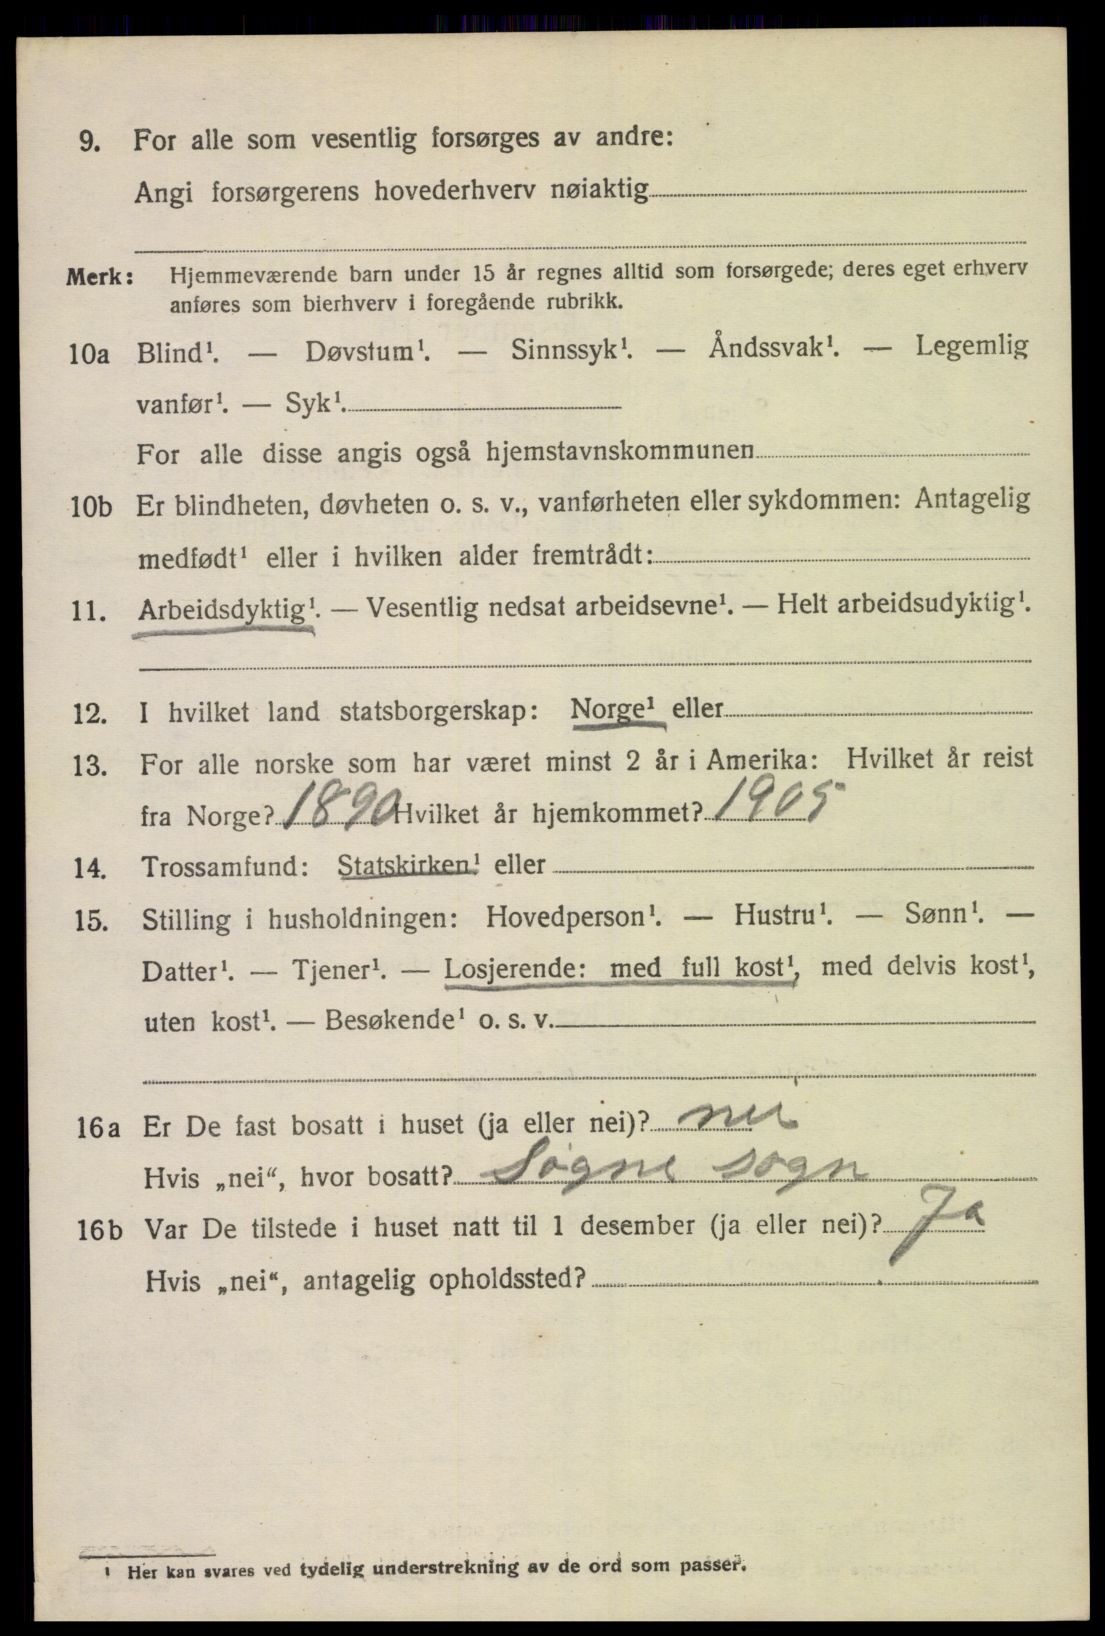 9. For alle som vesentlig forsørges av andre:
Angi forsørgerens hovederhverv nøiaktig
Merk: Hjemmeværende barn under 15 år regnes alltid som forsørgede; deres eget erhverv
anføres som bierhverv i foregående rubrikk.
10a Blind¹. — Døvstum¹. — Sinnssyk¹. — Åndssvak¹. — Legemlig
vanfør¹. — Syk¹.
For alle disse angis også hjemstavnskommunen
10b Er blindheten, døvheten o. s. v., vanførheten eller sykdommen: Antagelig
medfødt¹ eller i hvilken alder fremtrådt:
11. Arbeidsdyktig¹. — Vesentlig nedsat arbeidsevne¹. — Helt arbeidsudyktig¹.
12. I hvilket land statsborgerskap: Norge¹ eller
13. For alle norske som har været minst 2 år i Amerika: Hvilket år reist
fra Norge? 1890 Hvilket år hjemkommet? 1905
14. Trossamfund: Statskirken¹ eller
15. Stilling i husholdningen: Hovedperson¹. — Hustru¹. — Sønn¹. —
Datter¹. — Tjener¹. — Losjerende: med full kost¹, med delvis kost¹,
uten kost¹. — Besøkende¹ o. s. v.
16a Er De fast bosatt i huset (ja eller nei)? nei
Hvis „nei“, hvor bosatt? Søgne sogn
16b Var De tilstede i huset natt til 1 desember (ja eller nei)? Ja
Hvis „nei“, antagelig opholdssted?
¹ Her kan svares ved tydelig understrekning av de ord som passer.